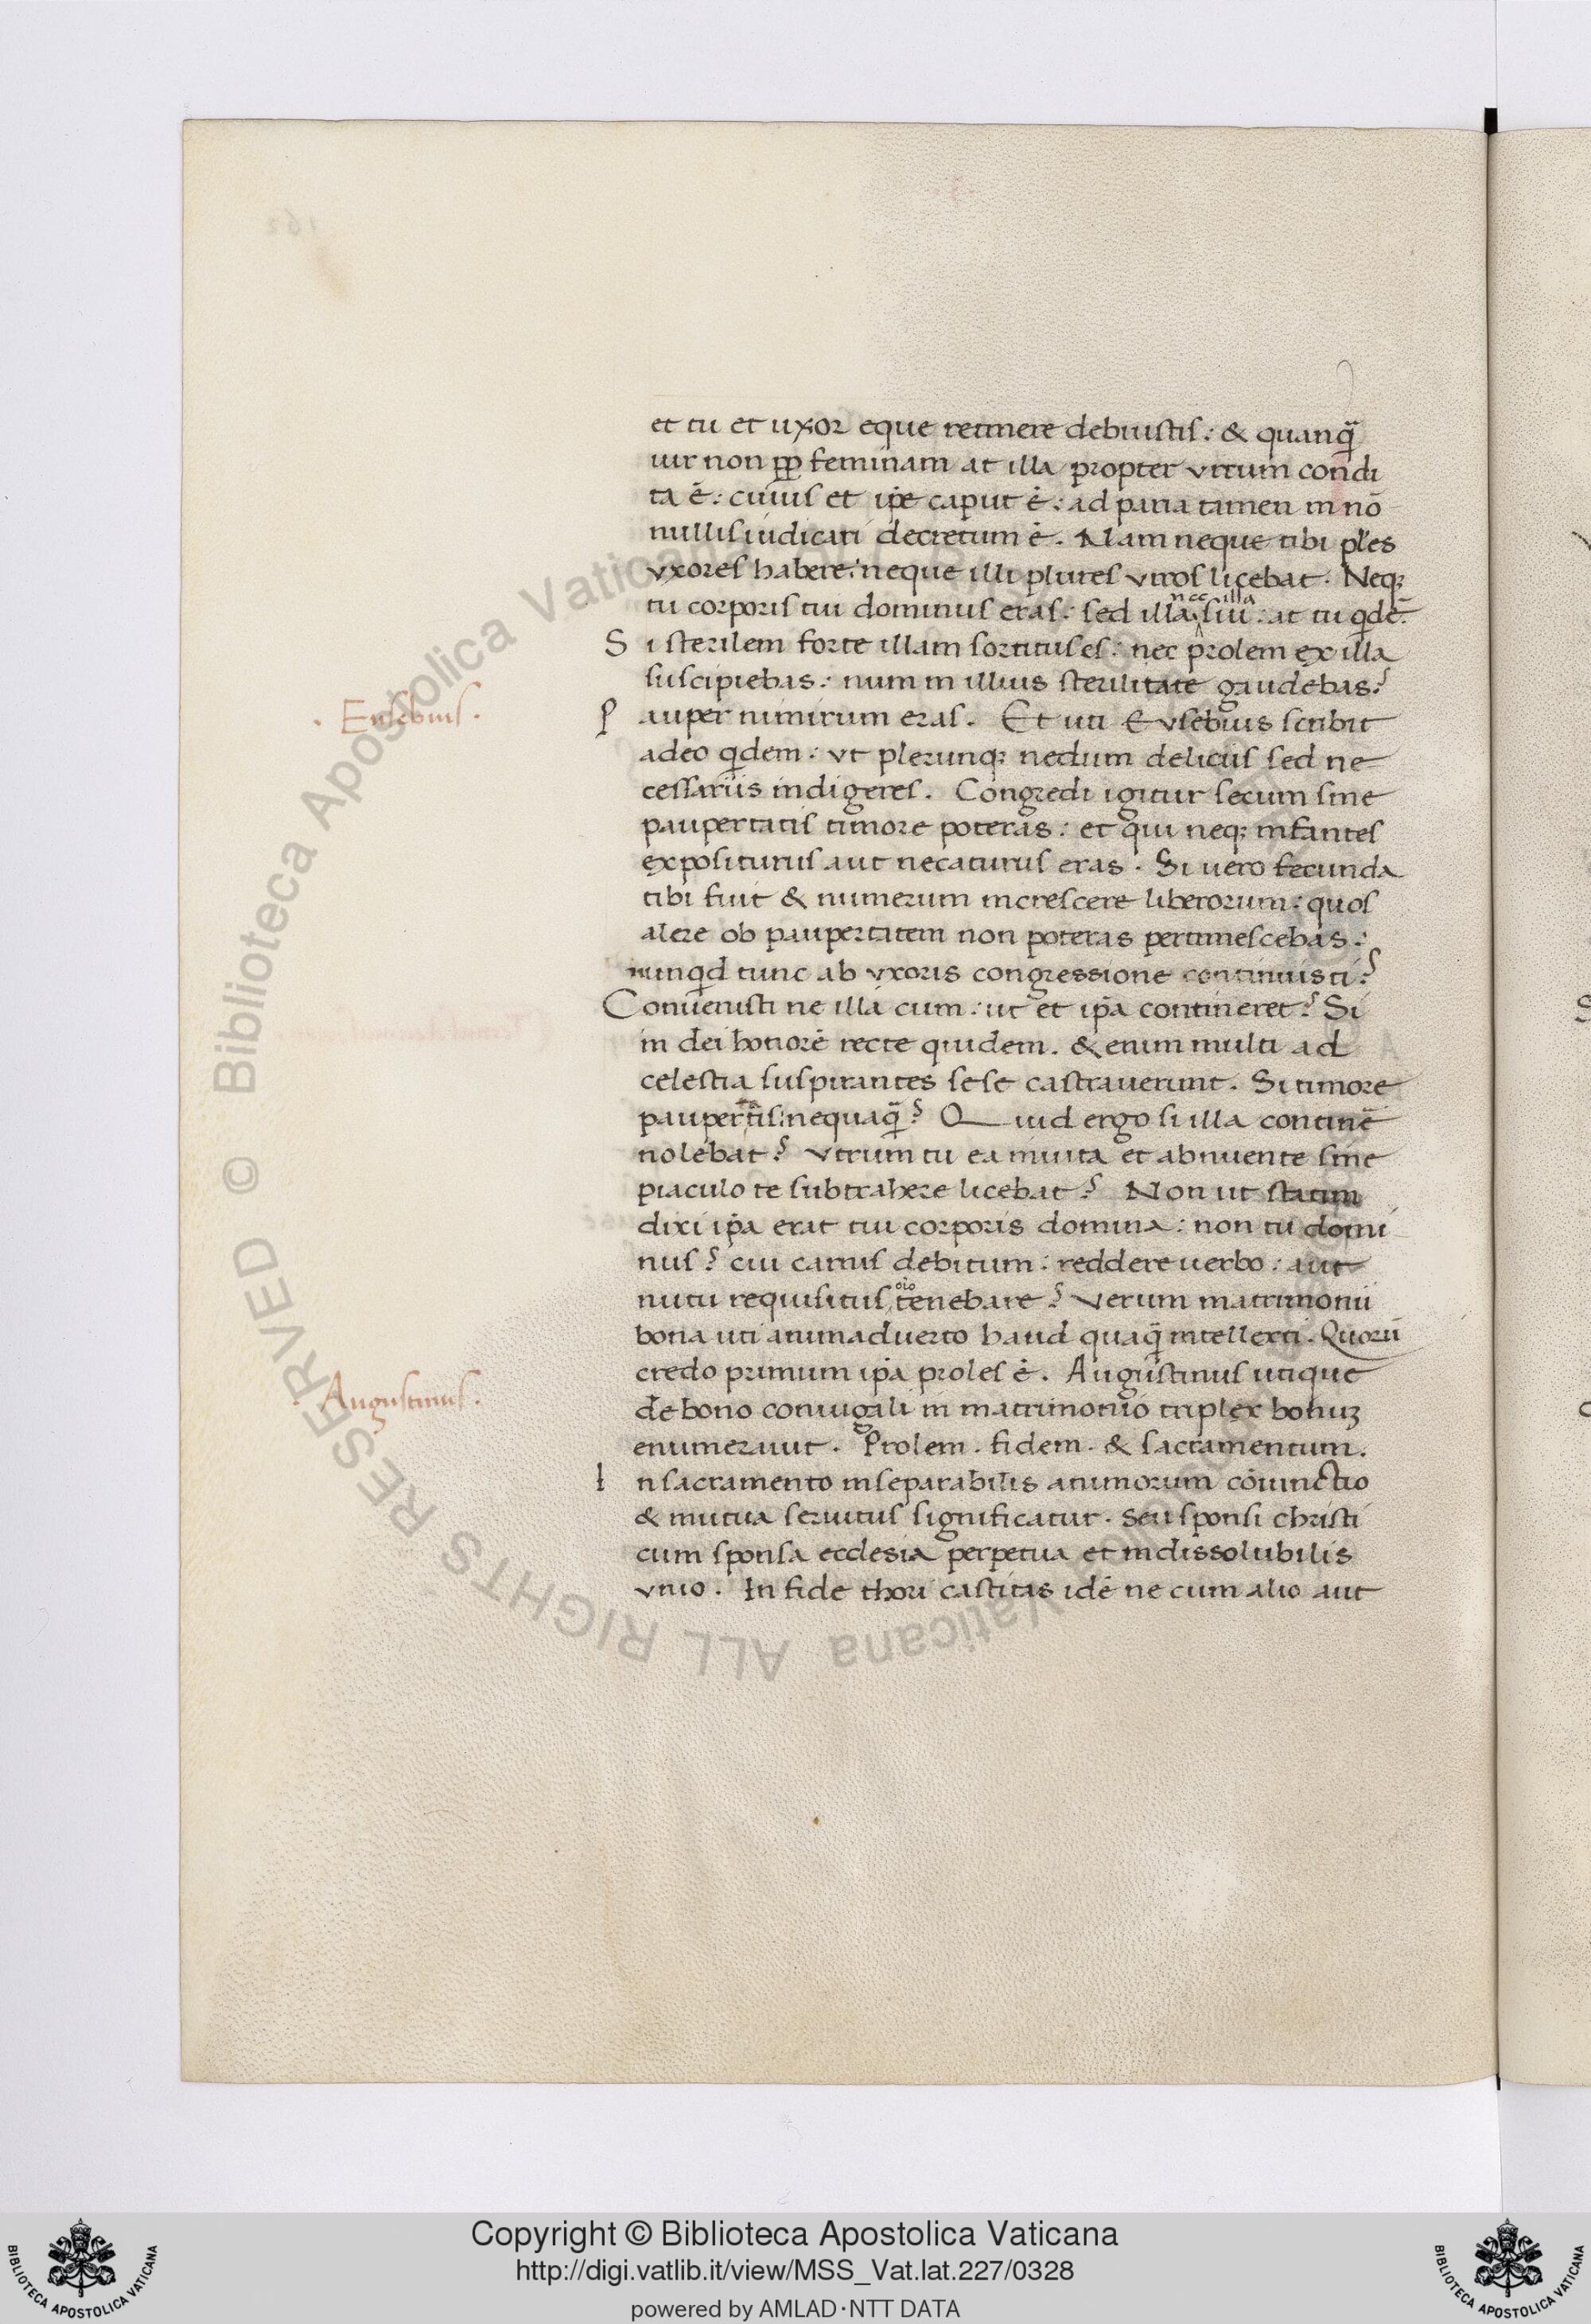 et tu et uxor eque retinere debuistis: & quanq̃
uir non pp̲ feminam at illa propter virum condi
ta ē: cuius et ip̄e caput ē: ad paria tamen in nō
nullis iudicari decretum ē. Nam neque tibi pl̄es
vxores habere: neque illi plures viros licebat. Neqꝫ
tu corporis tui dominus eras: sed illa nec illa sui: at tu q̇dē.
Si sterilem forte illam sortitus es: nec prolem ex illa
suscipiebas: num in illius sterilitate gaudebas?
. Eusebius.
Pauper nimirum eras. Et uti Eusebius scribit
adeo q̇dem: vt plerunqꝫ nedum deliciis sed ne
cessariis indigeres. Congredi igitur secum sine
paupertatis timore poteras: et qui neqꝫ infantes
expositurus aut necaturus eras. Si uero fecunda
tibi fuit & numerum increscere liberorum: quos
alere ob paupertatem non poteras pertimescebas:
nunq̇d tunc ab vxoris congressione continuisti?
Conuenisti ne illā cum: ut et ip̄a contineret? Si
in dei honorē recte quidem. & enim multi ad
celestia suspirantes sese castrauerunt. Si timore
paupertatis: nequaq̃? Quid ergo si illa continē
nolebat? vtrum tu ea inuita et abnuente sine
piaculo te subtrahere licebat? Non ut statim
dixi ip̄a erat tui corporis domina: non tu domi
nus? cui carnis debitum: reddere uerbo: aut
nutu requisitus oīo tenebare? Verum matrimonii
bona uti animaduerto haud quaq̃ intellexti. Quorū
credo primum ip̄a proles ē. Augustinus utique
Augustinus.
de bono coniugali in matrimonio triplex bonuꝫ
enumerauit. Prolem. fidem. & sacramentum.
In sacramento inseparabilis animorum cōiunctio
& mutua seruitus significatur. Seu sponsi christi
cum sponsa ecclesia perpetua et indissolubilis
vnio. In fide thori castitas idē ne cum alio aut
Copyright © Biblioteca Apostolica Vaticana
http://digi.vatlib.it/view/MSS_Vat.lat.227/0328
powered by AMLAD·NTT DATA